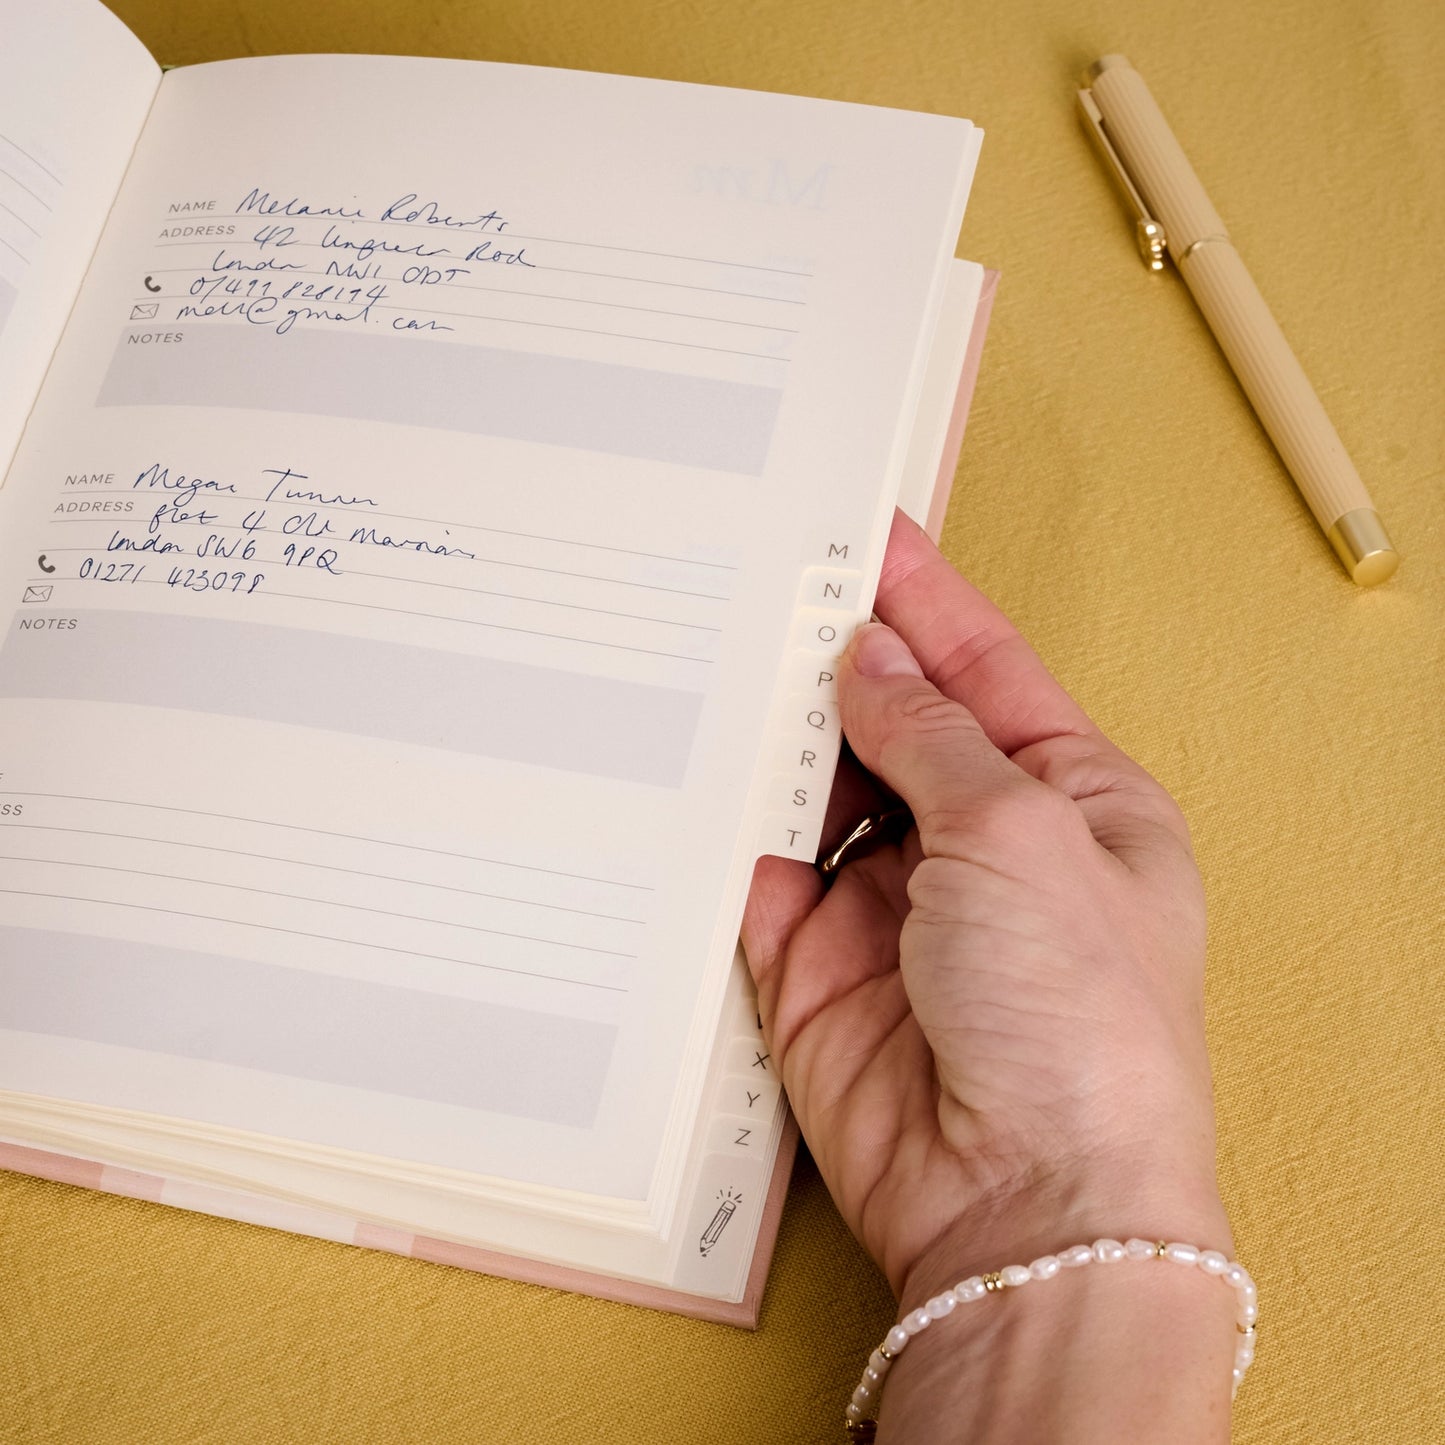 Mm
NAME Melanie Roberts
ADDRESS 42 Rod
London NW1 0DT
07499 828194
mell@gmail.com
NOTES
NAME Megan Turner
ADDRESS flat 4 Old Mansion
London SW6 9PQ
01271 423098
NOTES
SS
M
N
O
P
Q
R
S
T
X
Y
Z